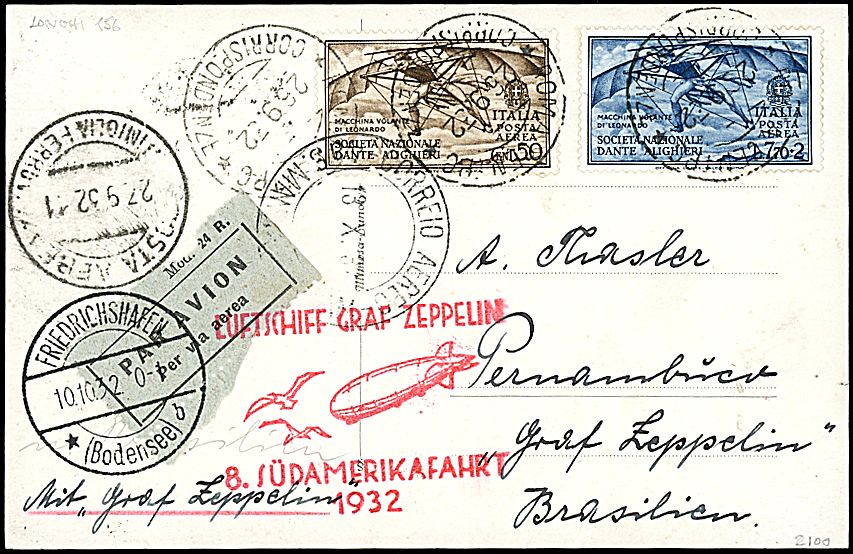 LONGHI 156
MACCHINA VOLANTE
DI LEONARDO
ITALIA
POSTA
AEREA
SOCIETÀ NAZIONALE
DANTE ALIGHIERI
CENT. 50
MACCHINA VOLANTE
DI LEONARDO
ITALIA
POSTA
AEREA
SOCIETÀ NAZIONALE
DANTE ALIGHIERI
L. 7.70+2
CORRISPONDENZE
23.9.32
27.9.32.11
POSTA AEREA
Mod. 24 R.
PAR AVION
per via aerea
CORREIO AEREO
FRIEDRICHSHAFEN
10.10.32. 0-
(Bodensee) b
A. Thasler
LUFTSCHIFF GRAF ZEPPELIN
Pernambuco
8. SÜDAMERIKAFAHRT
1932
„Graf Zeppelin"
Mit „Graf Zeppelin"
Brasilien.
2100